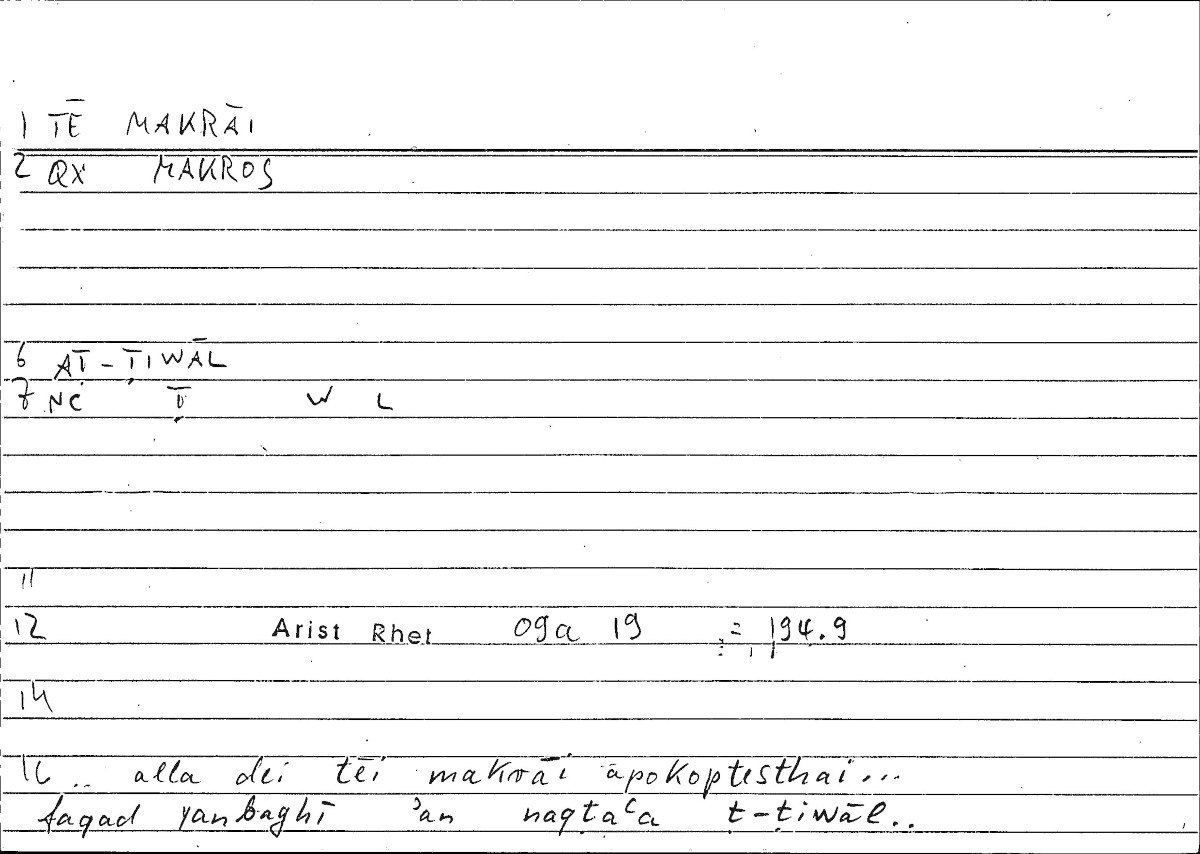 1 TĒ MAKRĀI
2 QX MAKROS
6 AṬ-ṬIWĀL
7 NC Ṭ W L
11
12 Arist Rhet 09a 19 = 194.9
14
16 .. alla dei tēi makrāi apokoptesthai...
faqad yanbaghī ʾan naqṭaʿa ṭ-ṭiwāl..